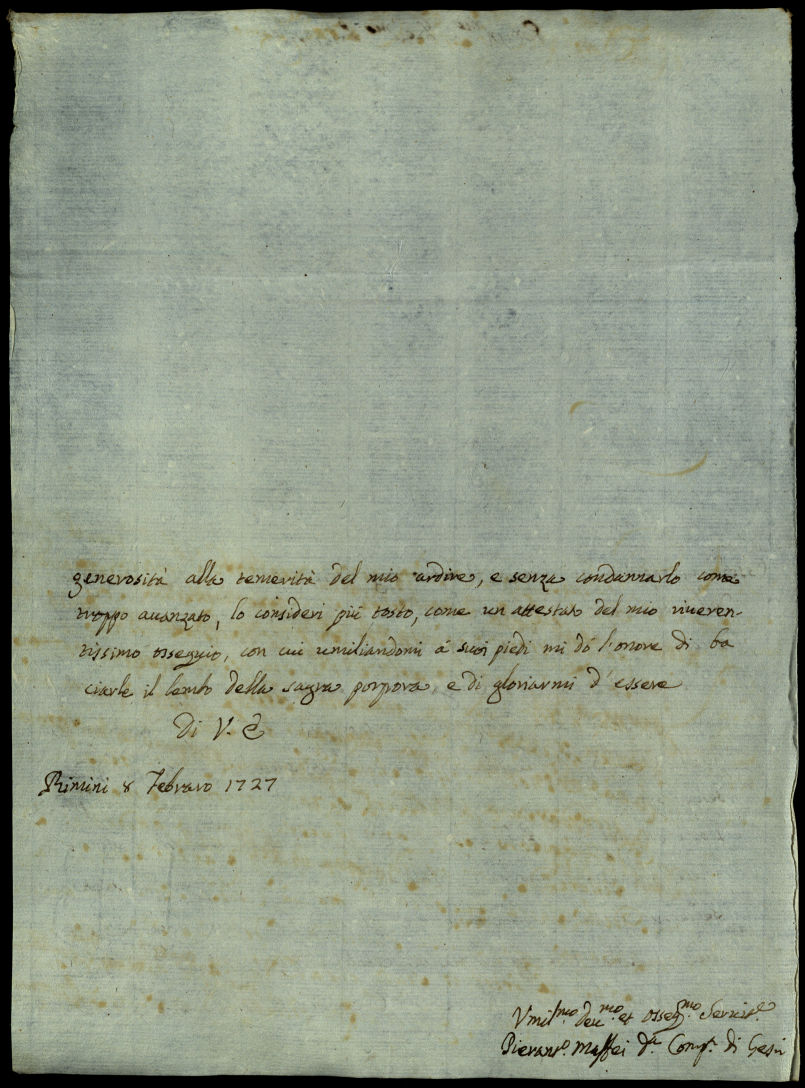 generosità alla temerità del mio ardire, e senza condannarlo come
troppo auanzato, lo consideri più tosto, come un attestato del mio riueren-
tissimo ossequio, con cui umiliandomi a' suoi piedi mi dò l'onore di ba
ciarle il lembo della sagra porpora, e di gloriarmi d'essere
Di V. E
Rimini 8 Febraro 1727
Vmil.mo deu.mo et osseq.mo Seruit.e
Pierant.o Maffei d.a Comp.a di Gesù